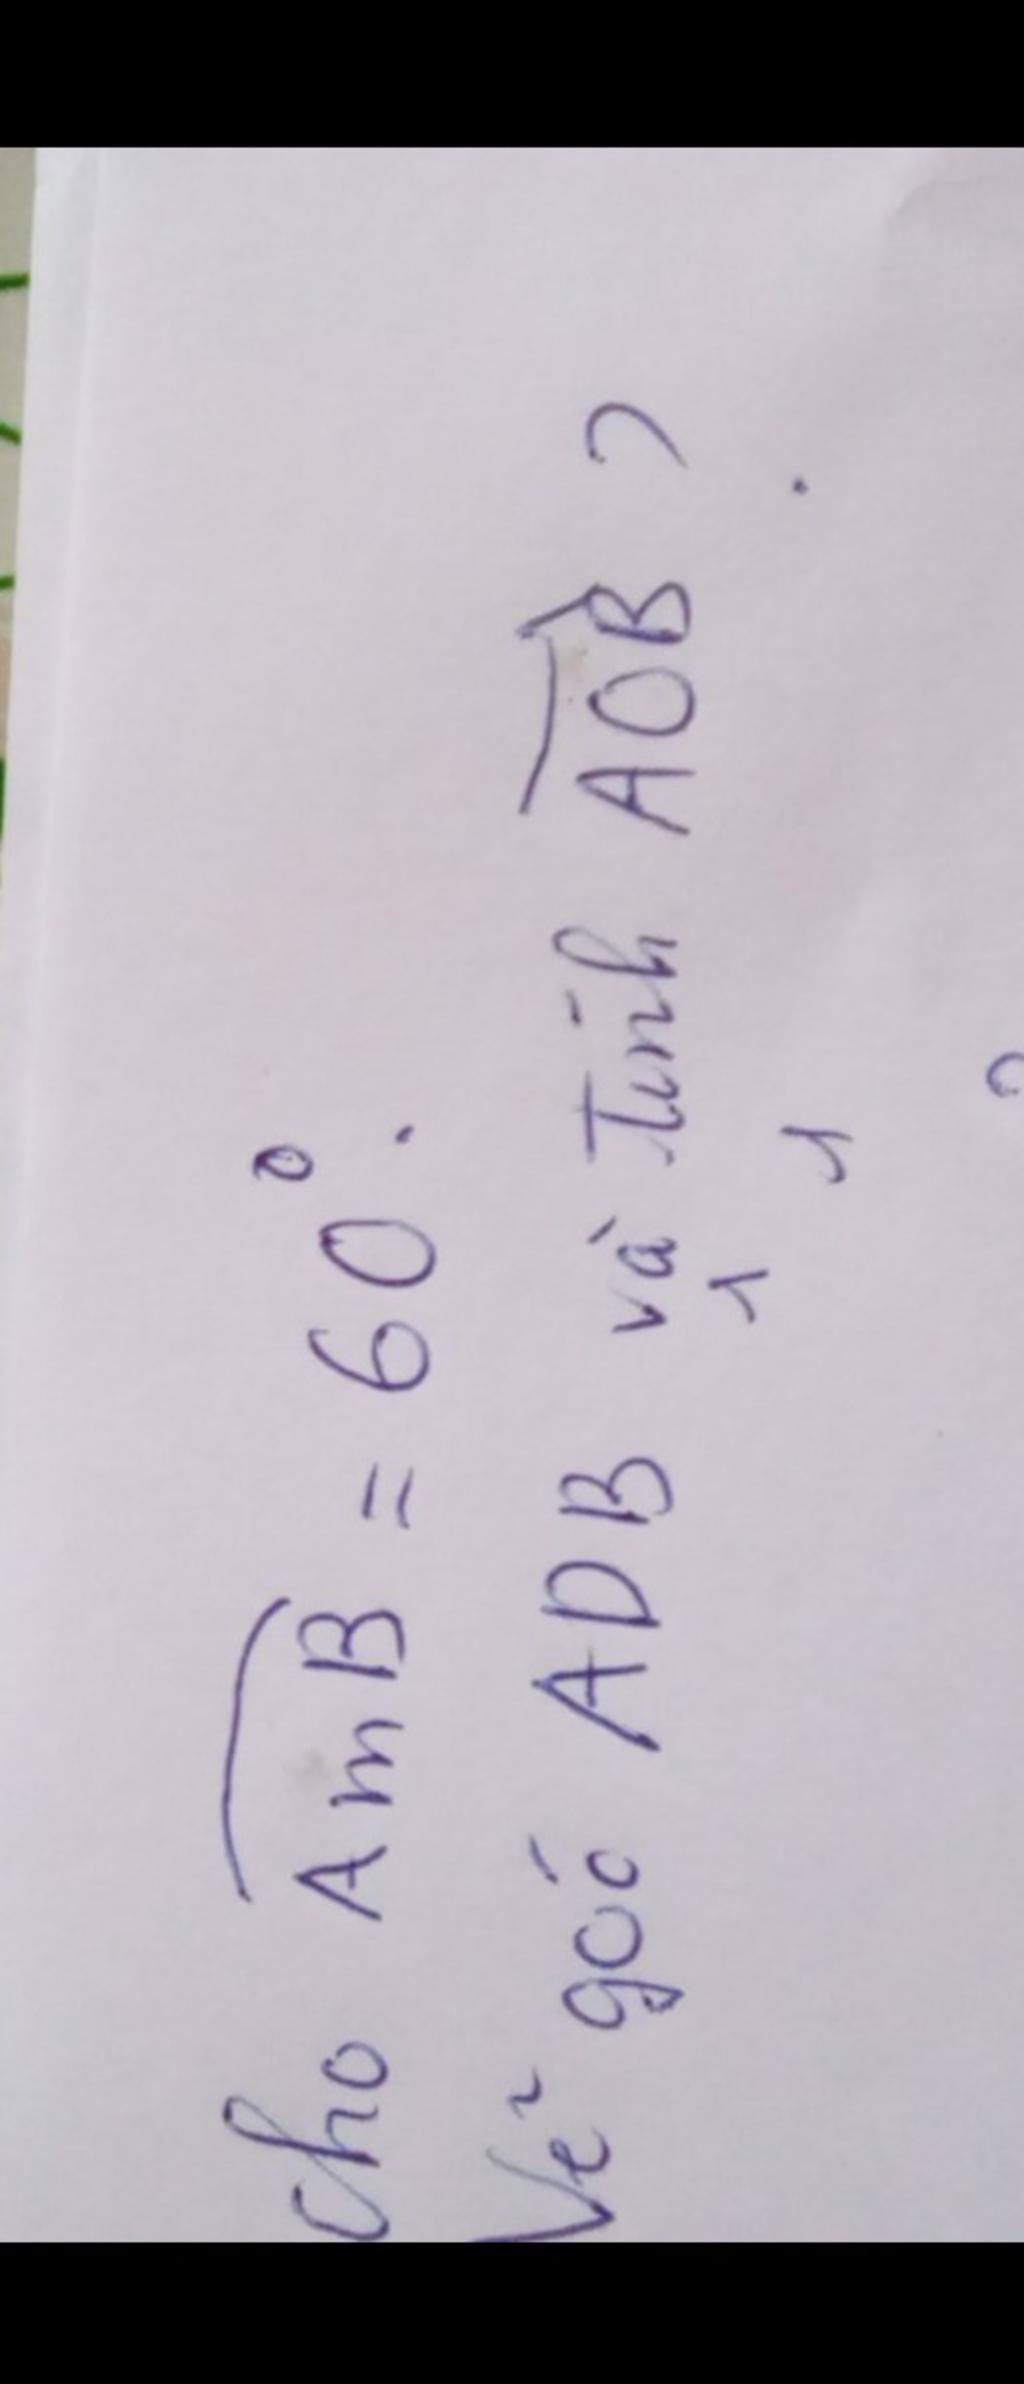 Cho AmB = 60⁰.
Vẽ góc ADB và Tính AOB ?